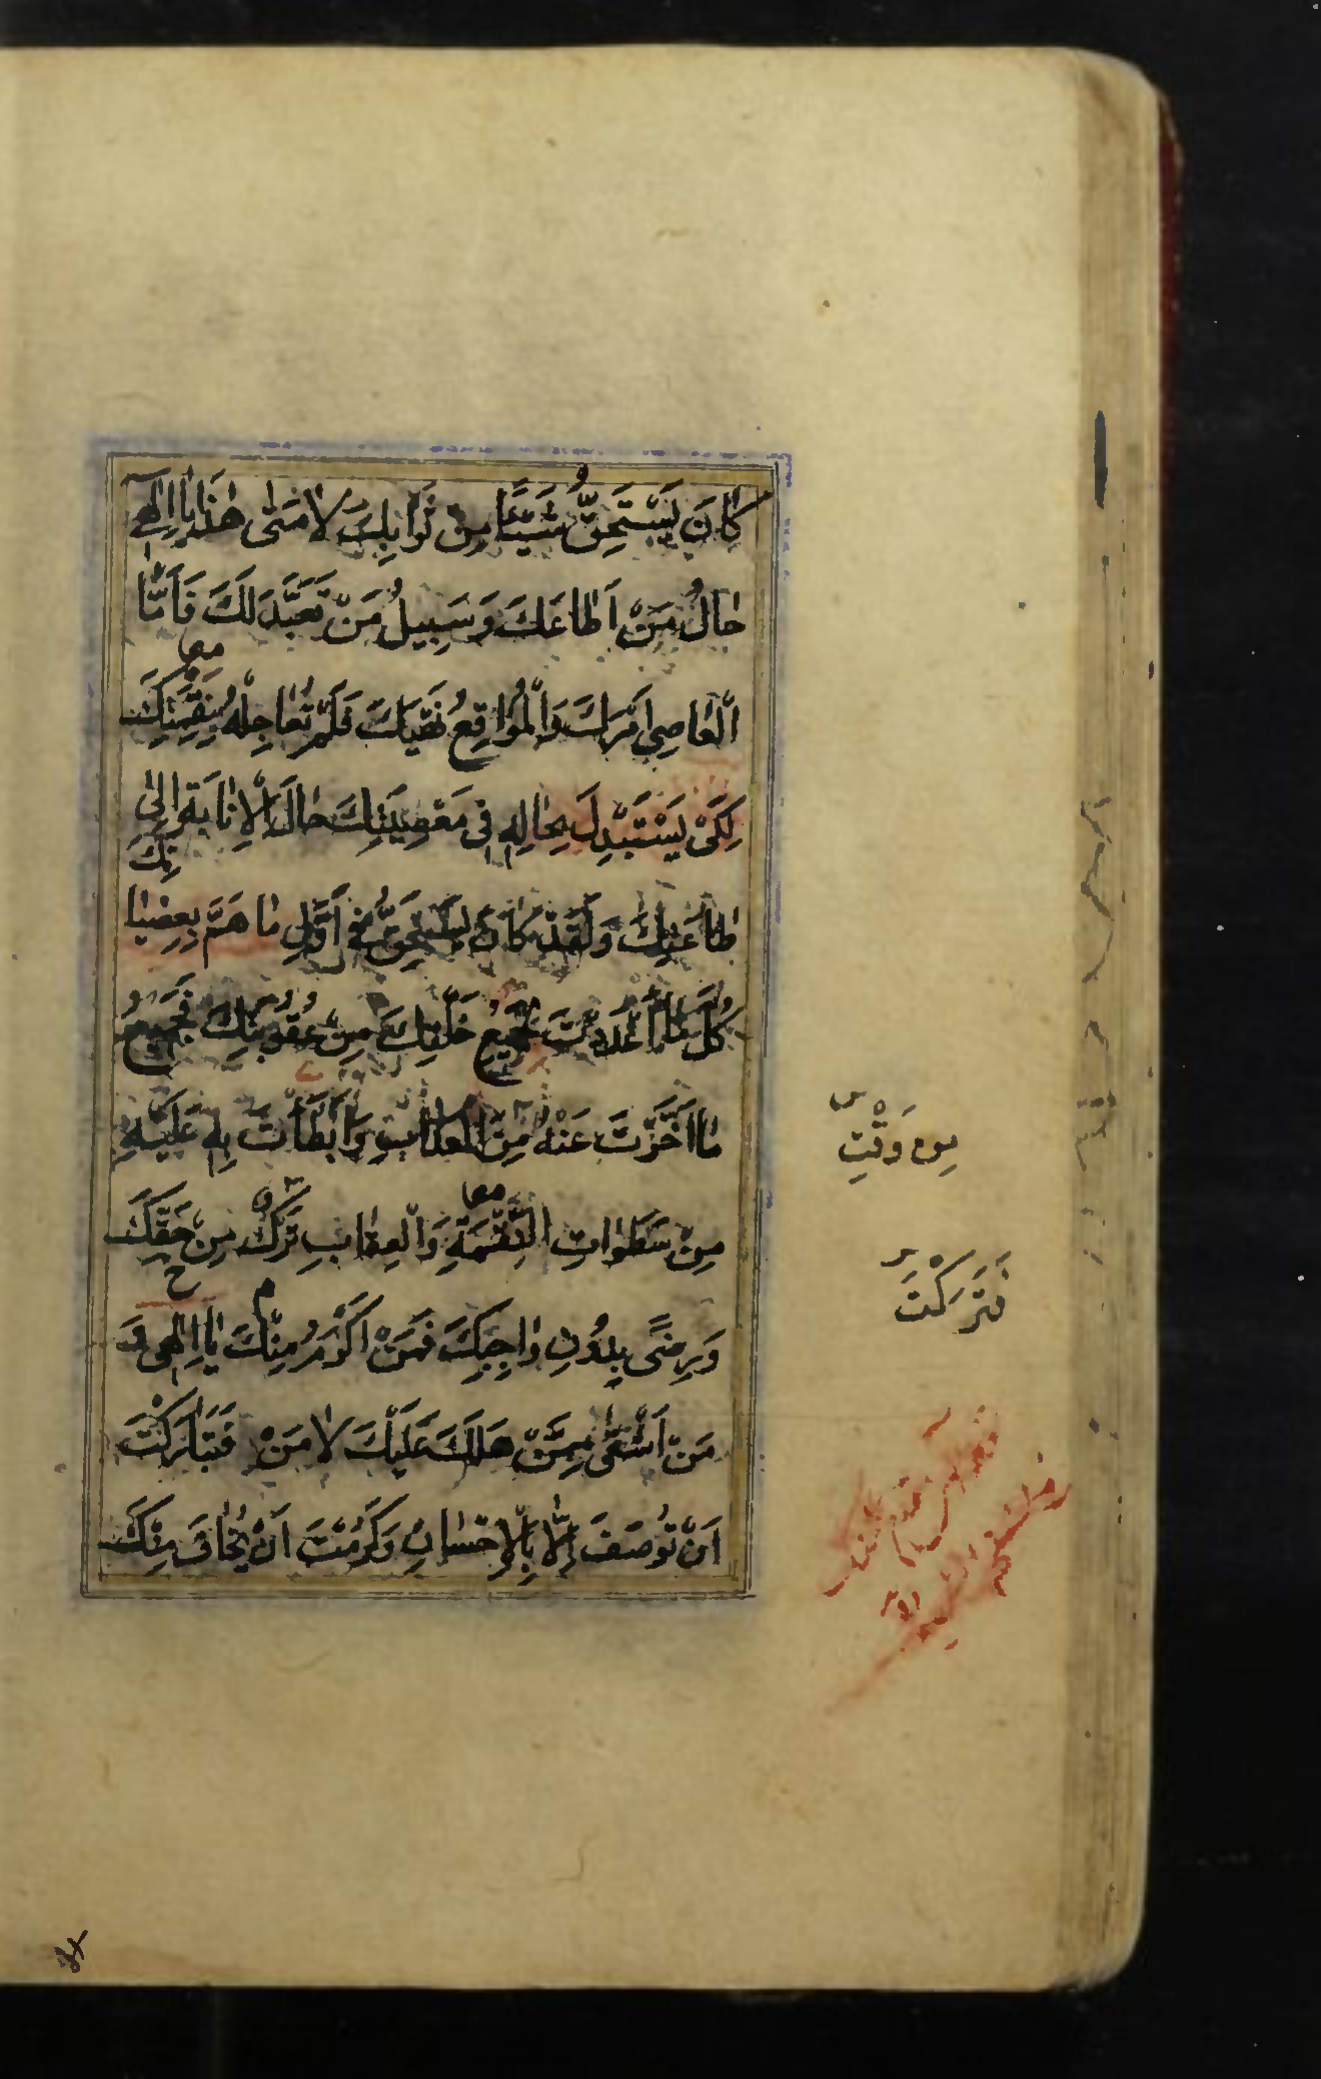 كَانَ يَسْتَحِقُّ شَيْئًا مِنْ ثَوَابِكَ لَا مَتَى هٰذَا يَا اِلٰهِي
حَالُ مَنْ اَطَاعَكَ وَسَبِيلُ مَنْ تَعَبَّدَ لَكَ فَاَمَّا
الْعَاصِي اَمْرَكَ وَالْمُوَاقِعُ نَهْيَكَ فَلَمْ تُعَاجِلْهُ بِنَقِمَتِكَ
معا
لِكَىْ يَسْتَبْدِلَ بِحَالِهِ فِي مَعْصِيَتِكَ حَالَ الْاِنَابَةِ اِلَى
طَاعَتِكَ وَلَقَدْ كَانَ يَسْتَحِقُّ فِي اَوَّلِ مَا هَمَّ بِعِصْيَا
نِكَ
كُلَّ مَا اَعْدَدْتَ لِجَمِيعِ خَلْقِكَ مِنْ عُقُوبَتِكَ فَجَمِيعُ
مَا اَخَّرْتَ عَنْهُ مِنَ الْعَذَابِ وَاَبْطَأْتَ بِهِ عَلَيْهِ
مِنْ سَطَوَاتِ النَّقِمَةِ وَالْعِقَابِ تَرْكٌ مِنْ حَقِّكَ
معا
وَرِضًى بِدُونِ وَاجِبِكَ فَمَنْ اَكْرَمُ مِنْكَ يَا اِلٰهِي وَ
مَنْ اَشْقَى مِمَّنْ هَلَكَ عَلَيْكَ لَا مَنْ فَتَبَارَكْتَ
اَنْ تُوصَفَ اِلَّا بِالْاِحْسَانِ وَكَرُمْتَ اَنْ يُخَافَ مِنْكَ
مِنْ وَقْتِ
فَتَرَكْتَ